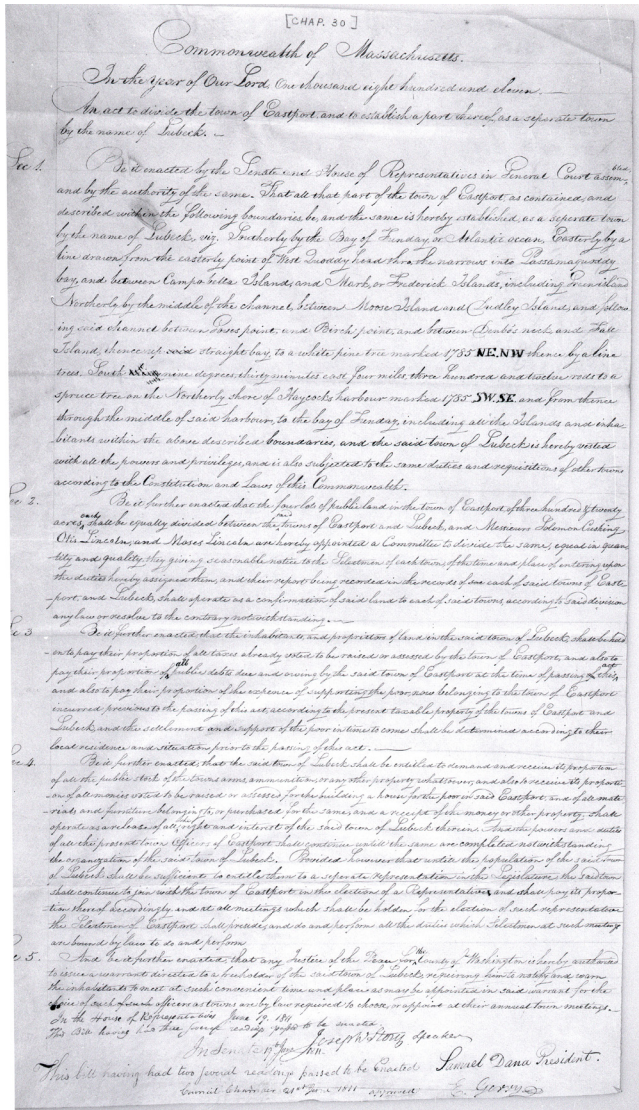 [CHAP. 30]
Commonwealth of Massachusetts.
In the Year of Our Lord, One thousand eight hundred and eleven
An act to divide the town of Eastport and to establish a part thereof, as a separate town
by the name of Lubeck. —
Sec 1. Be it enacted by the Senate and House of Representatives in General Court assembled,
and by the authority of the same. That all that part of the town of Eastport, as contained, and
described within the following boundaries be, and the same is hereby established, as a seperate town
by the name of Lubeck, viz. Southerly by the Bay of Funday, or Atlantic ocean, Easterly by a
line drawn from the easterly point of West Quoddy head thro. the narrows into Passamaquoddy
bay, and between Campobella Island, and Mark, or Frederick Islands, including Green island
Northerly by the middle of the channel, between Moose Island and Dudley Island, and follow
ing said channel between point, and Birch point, and between Denbo's neck and Fall
Island, thence up said straight bay, to a white pine tree marked 1785 NE. NW thence by a line
trees. South nine degrees, thirty minutes east four miles, three hundred and twelve rods to a
spruce tree on the Northerly shore of Haycocks harbour marked 1785 SW. SE and from thence
through the middle of said harbour, to the bay of Funday, including all the Islands and inha
bitants within the above described boundaries, and the said town of Lubeck is hereby vested
with all the powers and privileges, and is also subjected to the same duties and requisitions of other towns
according to the Constitution and Laws of this Commonwealth.
2. Be it further enacted that the four lots of public land in the town of Eastport of three hundred & twenty
acres each, shall be equally divided between the towns of Eastport and Lubeck, and Messieurs Solomon Cushing
Otis Lincoln, and Moses Lincoln are hereby appointed a Committee to divide the same, equal in quan
tity and quality, they giving seasonable notice to the Selectmen of each towns of the time and place of entering upon
the duties hereby assigned them, and their report being recorded in the records of each of said towns of East
port, and Lubeck, shall operate as a confirmation of said land to each of said towns, according to said division
any law or resolve to the contrary notwithstanding. —
3 Be it further enacted that the inhabitants, and proprietors of land in the said town of Lubeck, shall be hold
en to pay their proportion of all taxes already voted to be raised or assessed by the town of Eastport, and also to
pay their proportion of all public debts due and owing by the said town of Eastport at the time of passing of this act,
and also to pay their proportion of the expence of supporting the poor, now belonging to the town of Eastport
incurred previous to the passing of this act, according to the present taxable property of the towns of Eastport and
Lubeck, and the settlement and support of the poor in time to come shall be determined according to their
local residence and situation, prior to the passing of this act. —
4. Be it further enacted, that the said town of Lubeck shall be entitled to demand and receive its proportion
of all the public stock of the towns arms, ammunition, or any other property whatsoever, and also to receive its proporti
on of all monies voted to be raised or assessed for the building a house for the poor in said Eastport, and of all mate
rials and furniture belonging to, or purchased for the same, and a receipt of the money or other property, shall
operate as a release of all the right and interest of the said town of Lubeck therein. And the powers and duties
of all the present town officers of Eastport shall continue untill the same are completed notwithstanding
the organization of the said town of Lubeck. Provided however that untill the population of the said Town
of Lubeck shall be sufficient to entitle them to a seperate representation in the Legislature, the said town
shall continue to join with the town of Eastport in this election of a Representative, and shall pay its propor
tion thereof accordingly, and at all meetings which shall be holden for the election of such representative
the Selectmen of Eastport shall preside, and do and perform all the duties which Selectmen at such meeting
are bound by law to do and perform
5. And be it further enacted, that any Justice of the Peace for the County of Washington is hereby authorized
to issue a warrant directed to a freeholder of the said town of Lubeck, requiring him to notify and warn
the inhabitants to meet at such convenient time and place as may be appointed in said warrant for the
choice of such officers as towns are by law required to choose, or appoint at their annual town meetings. —
In the House of Representatives June 19. 1811
This Bill having had three several readings passed to be enacted
Joseph Story Speaker
In Senate June 1811.
This bill having had two several readings passed to be Enacted
Samuel Dana President.
Council Chamber 21st June 1811 approved
E. Gerry